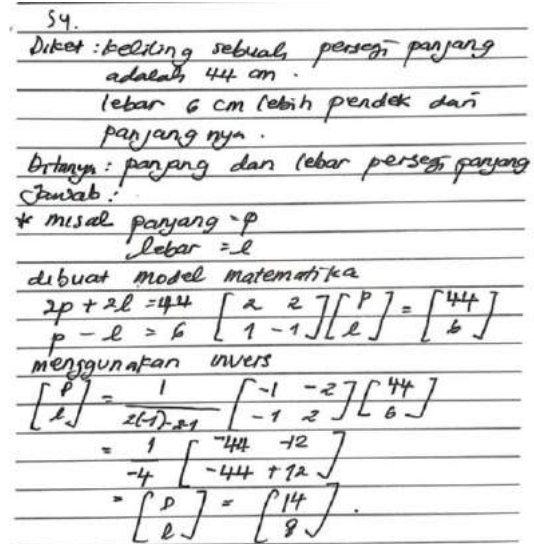 S4.
Diket : keliling sebuah persegi panjang
adalah 44 cm .
lebar 6 cm lebih pendek dari
panjang nya .
Ditanya : panjang dan lebar persegi panjang
Jawab :
* misal panjang = p
lebar = l
dibuat model matematika
2p + 2l = 44 [2 2; 1 -1] [p; l] = [44; 6]
p - l = 6
menggunakan invers
[p; l] = 1/(2(-1)-2·1) [-1 -2; -1 2] [44; 6]
= 1/-4 [-44 -12; -44 +12]
= [p; l] = [14; 8] .